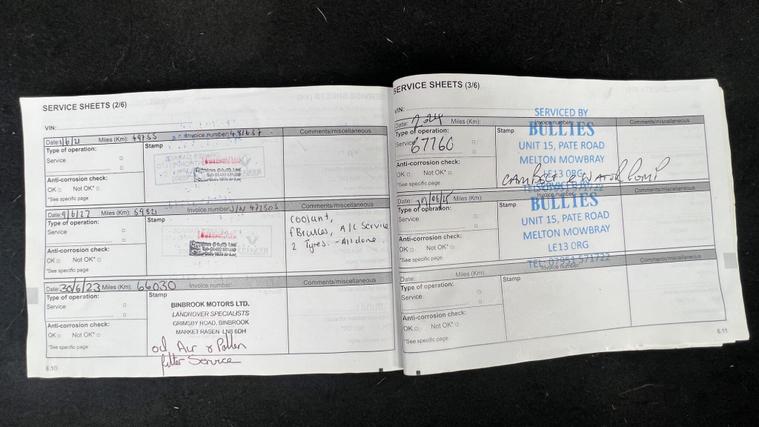 SERVICE SHEETS (2/6)
VIN:
Date: Miles (Km): Invoice number: Comments/miscellaneous
Type of operation: Stamp
Service
Anti-corrosion check:
OK Not OK*
*See specific page
Date: Miles (Km): 59521 Invoice number: Comments/miscellaneous
Type of operation: Stamp
Service
Coolunt,
f Brakes, A/C Service
2 Tyres. - All done
Anti-corrosion check:
OK Not OK*
*See specific page
Date: 30/6/23 Miles (Km): 66030 Invoice number: Comments/miscellaneous
Type of operation: Stamp
Service
BINBROOK MOTORS LTD.
LANDROVER SPECIALISTS
GRIMSBY ROAD, BINBROOK
MARKET RASEN LN8 6DH
Anti-corrosion check:
OK Not OK*
*See specific page
oil Air & Pollen
filter Service
6.10
SERVICE SHEETS (3/6)
VIN:
Date: 2024 Miles (Km): Comments/miscellaneous
Type of operation: Stamp
Service 67760
SERVICED BY
BULLIES
UNIT 15, PATE ROAD
MELTON MOWBRAY
LE13 0RG
Anti-corrosion check:
OK Not OK*
*See specific page
CAMBELT & WATER PUMP
Date: Miles (Km): Comments/miscellaneous
Type of operation: Stamp
Service
BULLIES
UNIT 15, PATE ROAD
MELTON MOWBRAY
LE13 0RG
TEL: 07953 571722
Anti-corrosion check:
OK Not OK*
*See specific page
Date: Miles (Km): Invoice number: Comments/miscellaneous
Type of operation: Stamp
Service
Anti-corrosion check:
OK Not OK*
*See specific page
6.11